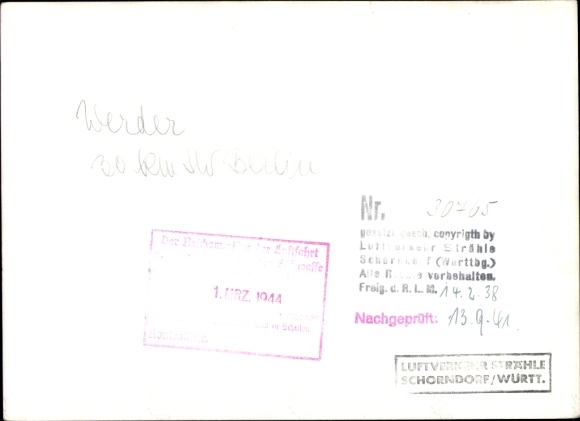 Werder
30 km SW Berlin
Nr. 30705
gesetzl. gesch. copyrigth by
Luftverkehr Strähle
Schorndorf (Württbg.)
Alle Rechte vorbehalten.
Freig. d. R. L. M. 14.2.38
Nachgeprüft: 13.9.41.
Der Luftfahrt
1. MRZ. 1944
LUFTVERKEHR STRÄHLE
SCHORNDORF/WÜRTT.